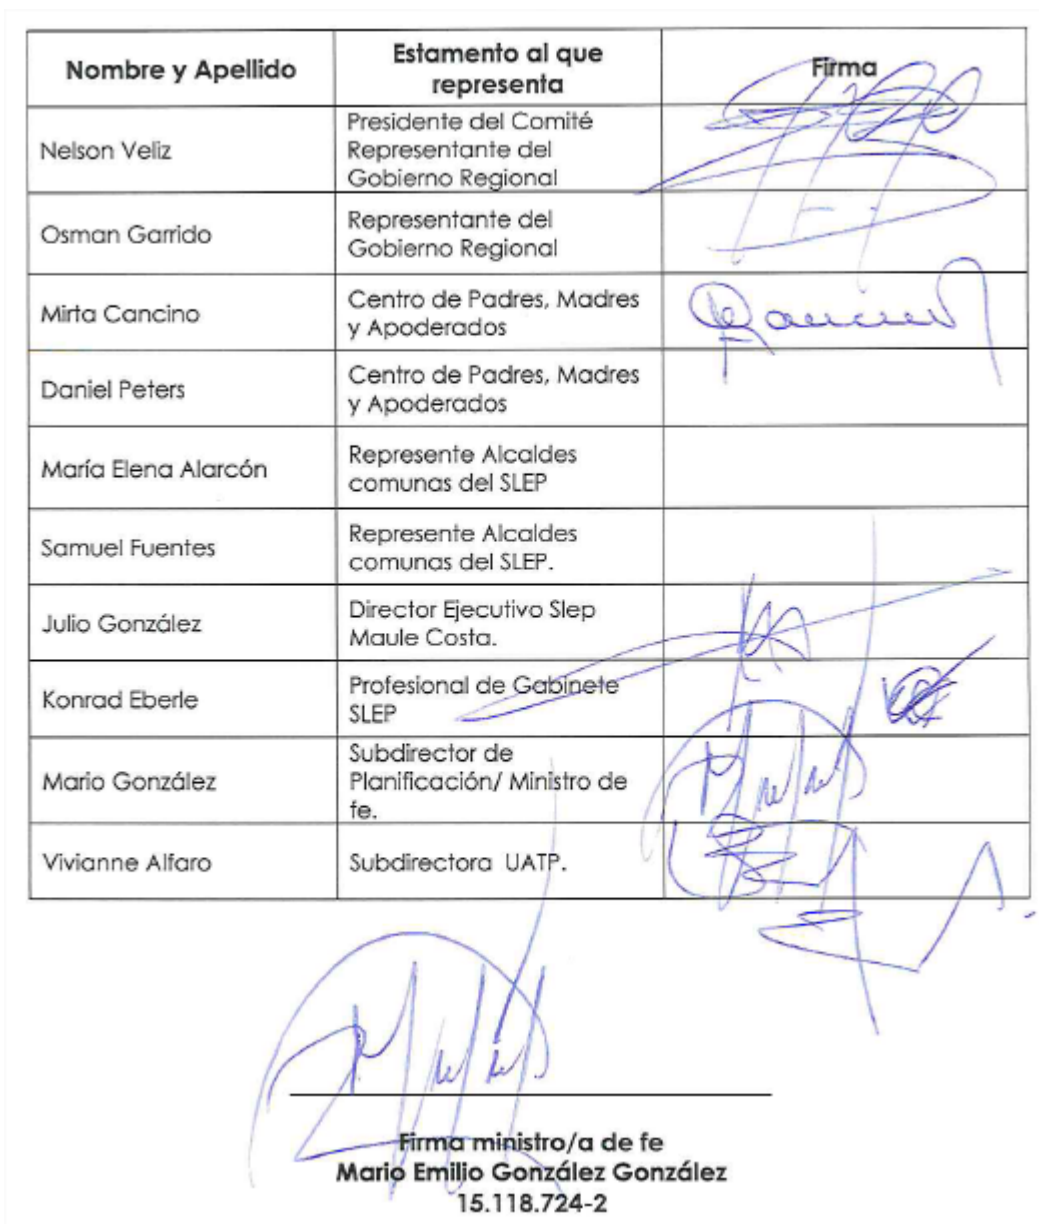 Nombre y Apellido
Estamento al que
representa
Firma
Nelson Veliz
Presidente del Comité
Representante del
Gobierno Regional
Osman Garrido
Representante del
Gobierno Regional
Mirta Cancino
Centro de Padres, Madres
y Apoderados
Daniel Peters
Centro de Padres, Madres
y Apoderados
María Elena Alarcón
Represente Alcaldes
comunas del SLEP
Samuel Fuentes
Represente Alcaldes
comunas del SLEP.
Julio González
Director Ejecutivo Slep
Maule Costa.
Konrad Eberle
Profesional de Gabinete
SLEP
Mario González
Subdirector de
Planificación/ Ministro de
fe.
Vivianne Alfaro
Subdirectora UATP.
Firma ministro/a de fe
Mario Emilio González González
15.118.724-2